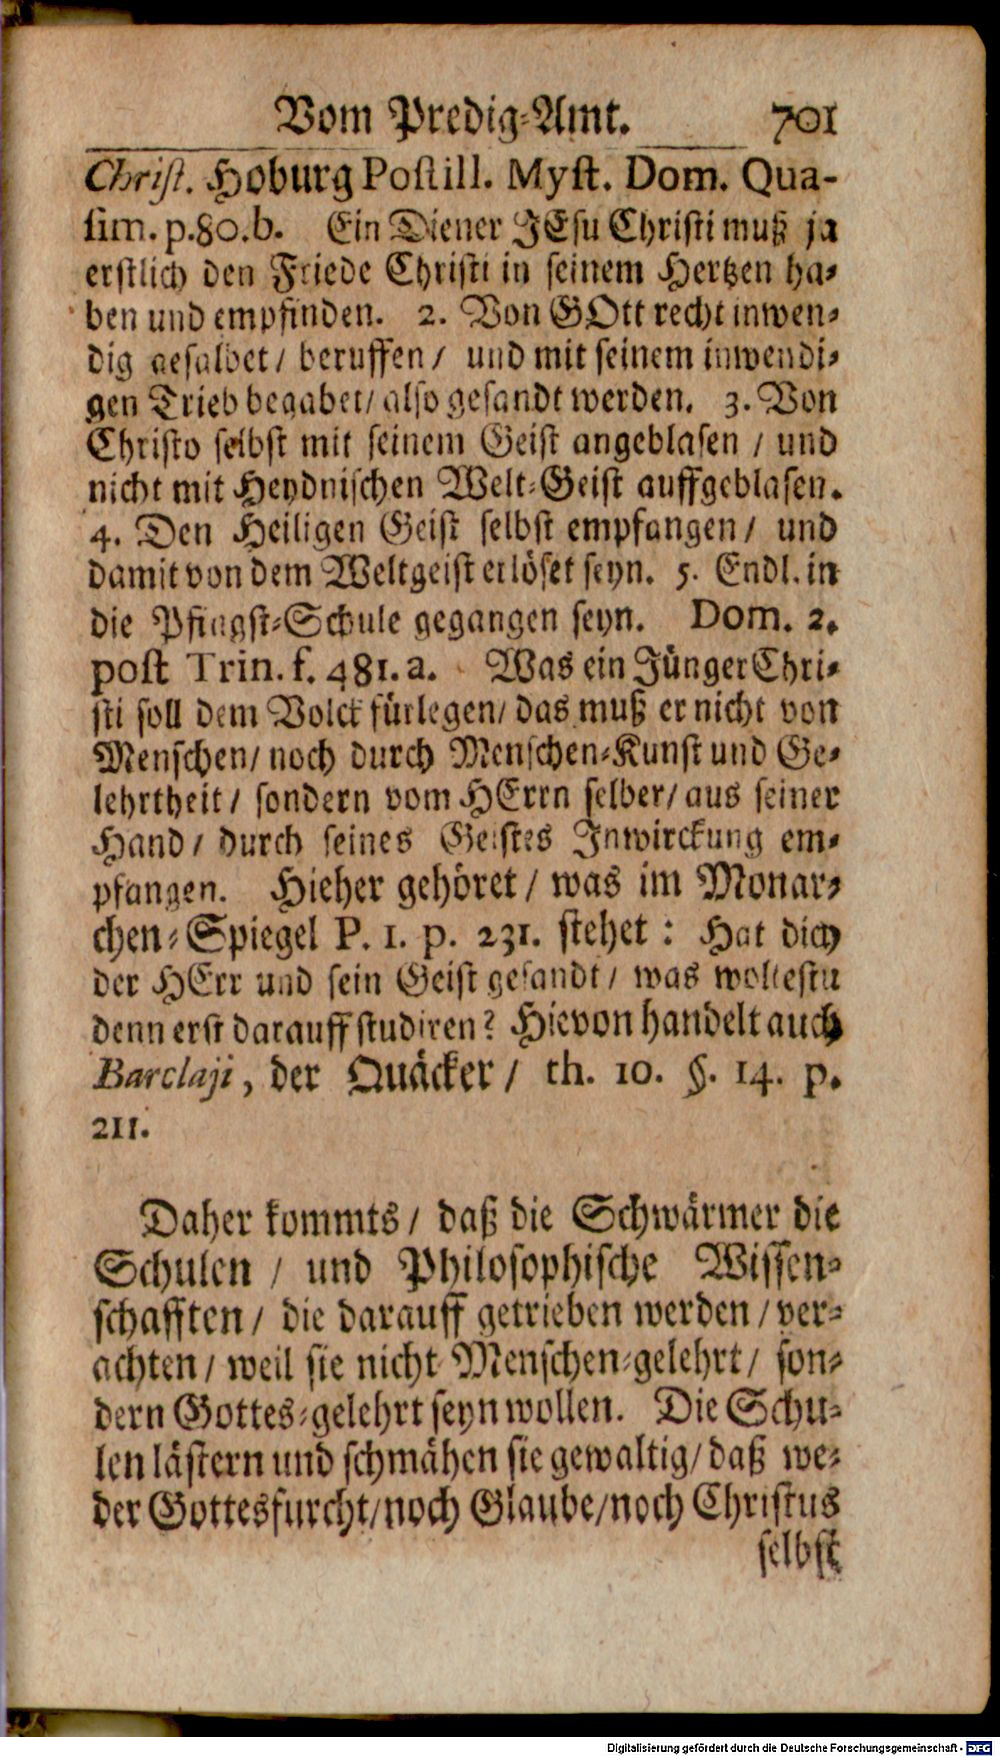 Vom Predig-Amt. 701
Christ. Hoburg Postill. Myst. Dom. Qua-
sim. p. 80. b. Ein Diener JEsu Christi muß ja
erstlich den Friede Christi in seinem Hertzen ha-
ben und empfinden. 2. Von GOtt recht inwen-
dig gesalbet / beruffen / und mit seinem inwendi-
gen Trieb begabet / also gesandt werden. 3. Von
Christo selbst mit seinem Geist angeblasen / und
nicht mit Heydnischen Welt-Geist auffgeblasen.
4. Den Heiligen Geist selbst empfangen / und
damit von dem Weltgeist erlöset seyn. 5. Endl. in
die Pfingst-Schule gegangen seyn. Dom. 2.
post Trin. f. 481. a. Was ein Jünger Chri-
sti soll dem Volck fürlegen / das muß er nicht von
Menschen / noch durch Menschen-Kunst und Ge-
lehrtheit / sondern vom HErrn selber / aus seiner
Hand / durch seines Geistes Inwirckung em-
pfangen. Hieher gehöret / was im Monar-
chen-Spiegel P. 1. p. 231. stehet: Hat dich
der HErr und sein Geist gesandt / was woltestu
denn erst darauff studiren? Hievon handelt auch
Barclaji, der Quäcker / th. 10. §. 14. p.
211.
Daher kommts / daß die Schwärmer die
Schulen / und Philosophische Wissen-
schafften / die darauff getrieben werden / ver-
achten / weil sie nicht Menschen-gelehrt / son-
dern Gottes-gelehrt seyn wollen. Die Schu-
len lästern und schmähen sie gewaltig / daß we-
der Gottesfurcht / noch Glaube / noch Christus
selbst
Digitalisierung gefördert durch die Deutsche Forschungsgemeinschaft - DFG